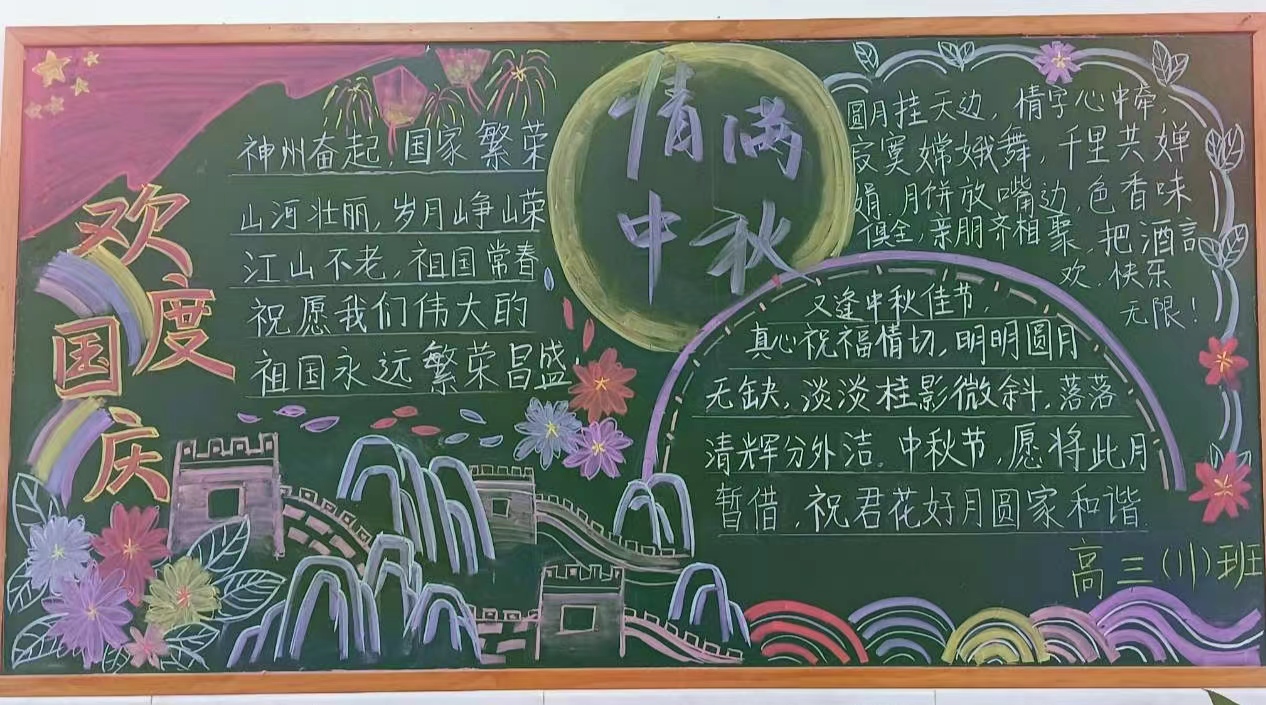 欢度
国庆
神州奋起,国家繁荣
山河壮丽,岁月峥嵘
江山不老,祖国常春
祝愿我们伟大的
祖国永远繁荣昌盛
情满
中秋
圆月挂天边,情字心中牵,
寂寞嫦娥舞,千里共婵
娟.月饼放嘴边,色香味
俱全,亲朋齐相聚,把酒言
欢.快乐
无限!
又逢中秋佳节,
真心祝福情切,明明圆月
无缺,淡淡桂影微斜,落落
清辉分外洁。中秋节,愿将此月
暂借,祝君花好月圆家和谐.
高三(11)班